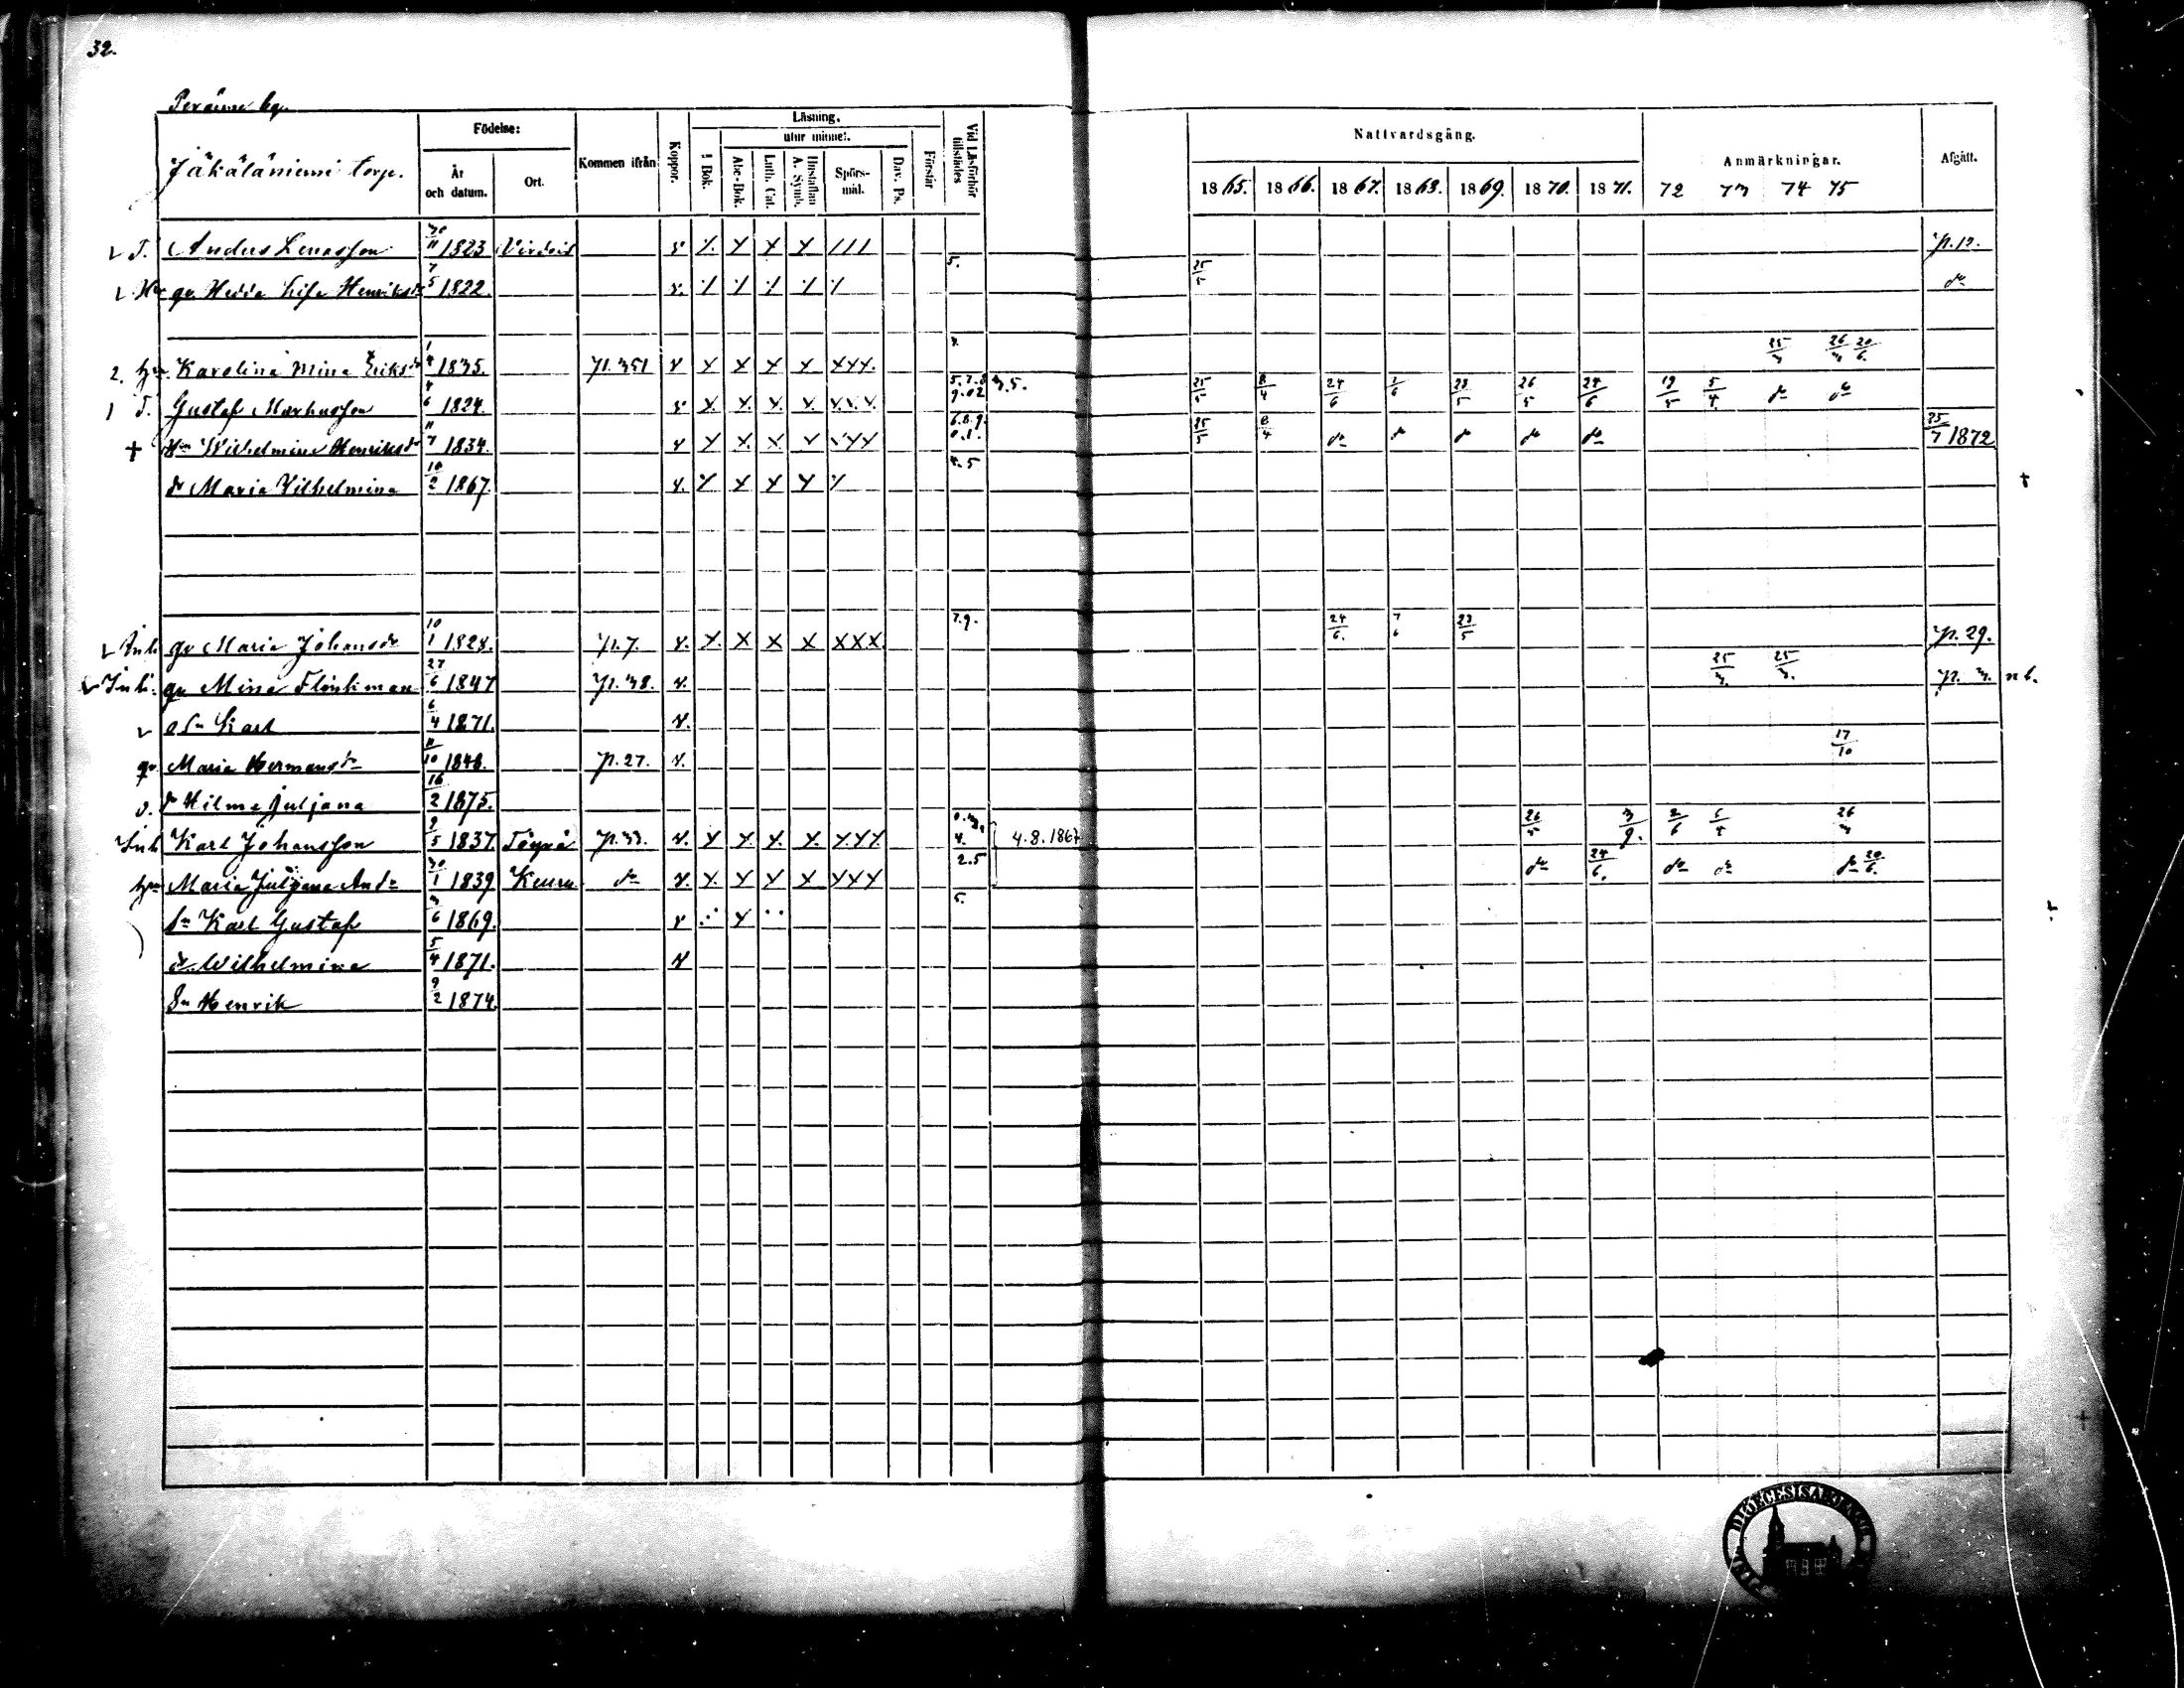 32.
Peränne by.
Jäkäläniemi torp.
Födelse:
År och datum.
Ort.
Kommen ifrån
Koppor.
Läsning.
I Bok.
utur minnet.
Abc-Bok.
Luth. Cat.
Hustaflan A. Symb.
Spörs-mål.
Dav. Ps.
Förstår
Vid Läsförhör tillstädes
Nattvardsgång.
1865. 1866. 1867. 1868. 1869. 1870. 1871.
Anmärkningar.
72 73 74 75
Afgått.
T. Anders Lenasson 30/11 1823 Virdois v x x x x /// p. 12.
Hu gv. Hedda Lisa Henriksdr 7/5 1822. v. 5. 25/5 do
2. hu. Karolina Mina Eriksdr 1/4 1835. p. 351 v x x x x xxx. 25/3 26/3 20/6.
1 T. Gustaf Markusson 4/6 1824. v x. x. x. x. x.x.x. 5.7.8 9.02 3.5. 25/5 8/4 24/6 7/6 23/5 26/5 24/6 19/5 5/4 do do
+ Hu Wilhelmina Henriksdr 11/7 1834. v x x. x x xxx 6.8.9. 0.1. 25/5 8/4 do do do do do 25/7 1872
dr Maria Vilhelmina 10/2 1867. v. x x x x 4.5 +
Inh. gv Maria Johansdr 10/1 1828. p. 7. v. x. x x x xxx 7.9. 24/6. 7/6 23/5 p. 29.
Inh. gv Mina Flinkman 27/6 1847 p. 38. v. 25/3. 25/3. p. 3. nb.
o sn Karl 6/4 1871. v.
gv. Maria Hermansdr 11/10 1848. p. 27. v. 17/10
o. dr Hilma Juljana 16/2 1875.
Inh Karl Johansson 9/5 1837. Töysä p. 33. v. x x. x. x. xxx 0.3. 4. 4.8.1867 26/5 3/9. 2/6 5/4 26/3
hu Maria Juljana Andr 30/1 1839 Keuru do v. x. x x x xxx 2.5 do 24/6. do do do 20/6.
sn Karl Gustaf 3/6 1869. v x 5.
dr. Wilhelmina 5/4 1871. v
Sn Henrik 9/2 1874.